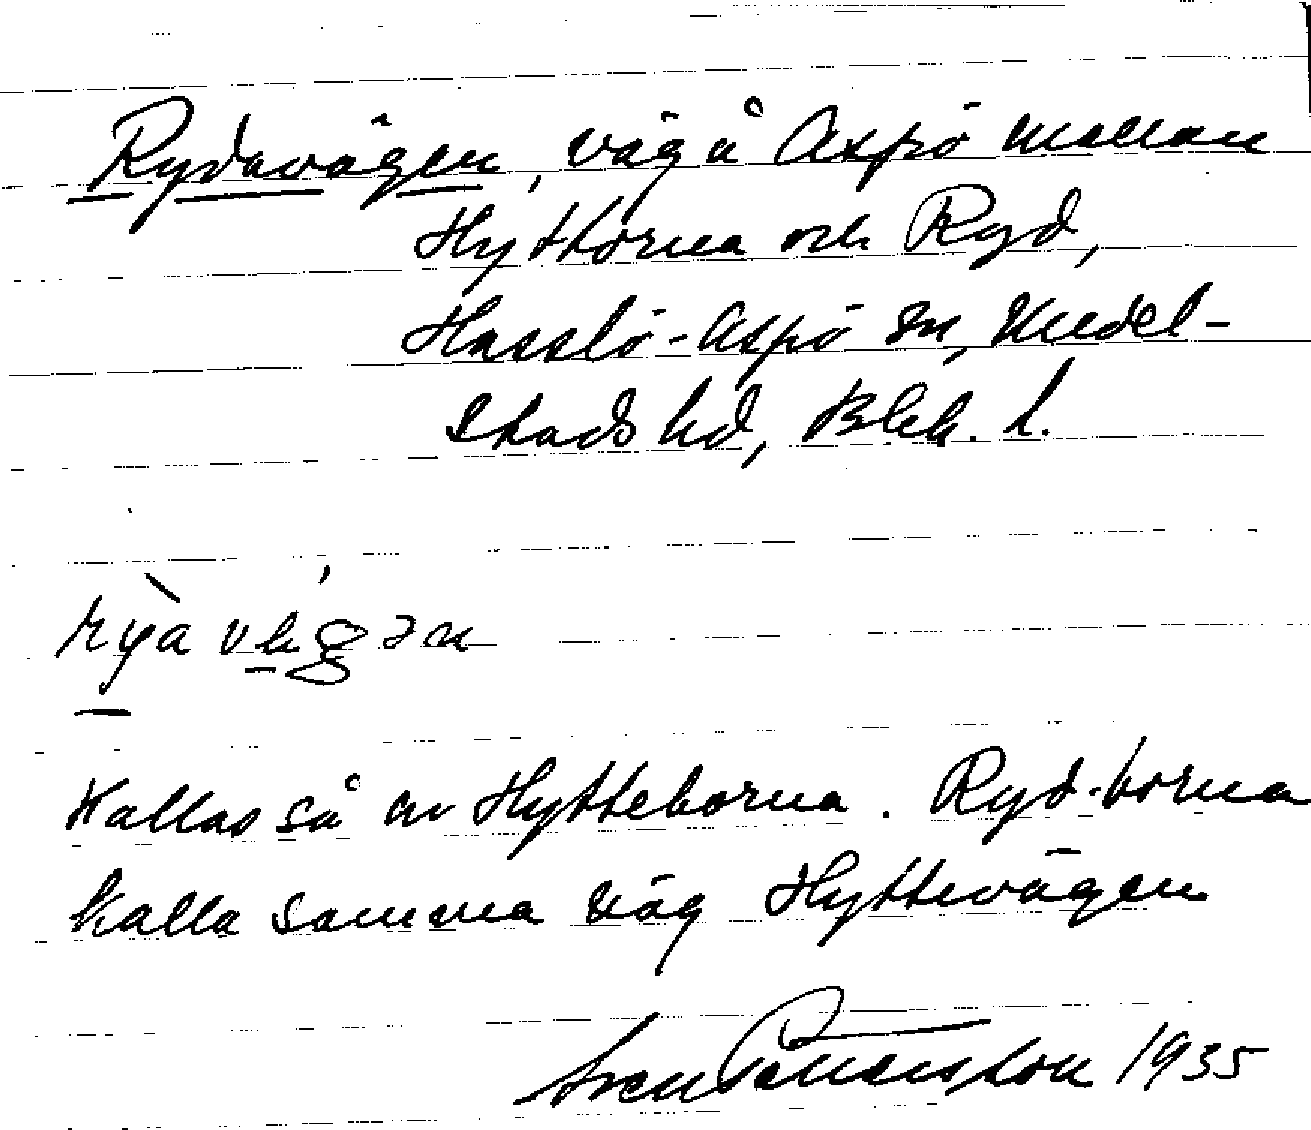 Rydavägen, väg å Aspö mellan
Hyttorna och Ryd,
Hasslö-Aspö sn, Medel-
stads hd, Blek. l.
Kallas så av Hytteborna. Ryd-borna
kalla samma väg Hyttevägen
Sven 1935